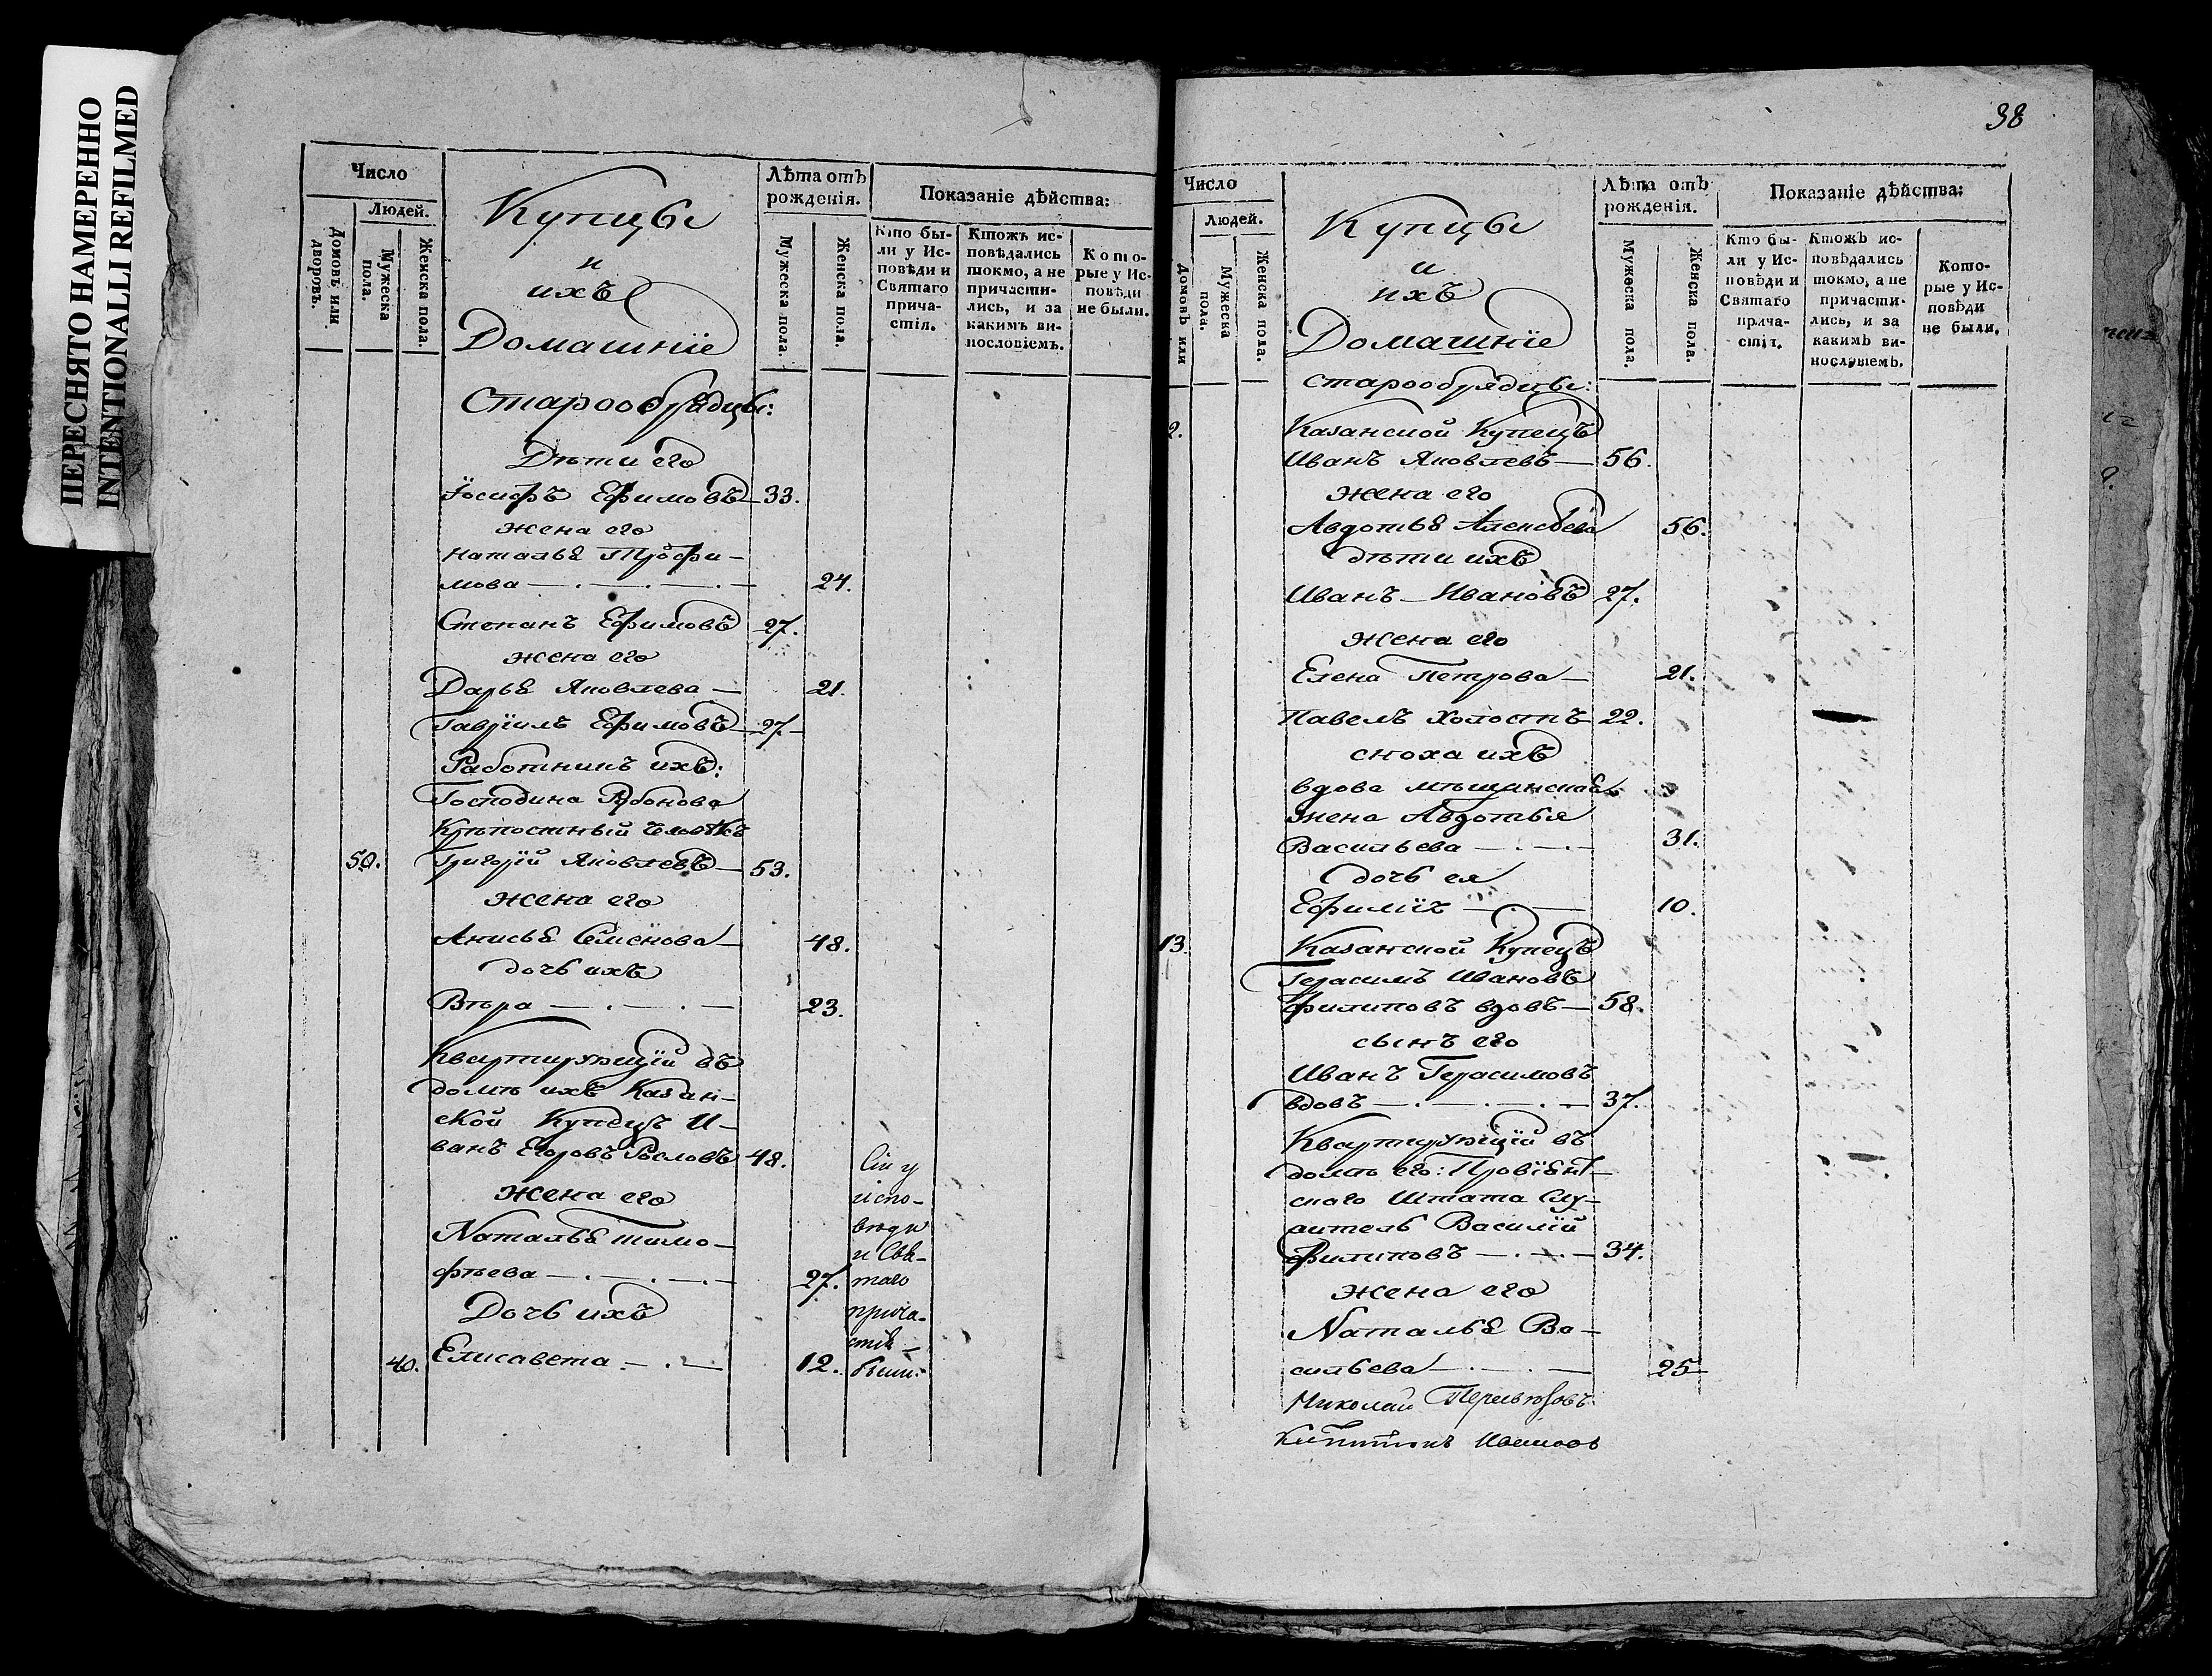 ПЕРЕСНЯТО НАМЕРЕННО
INTENTIONALLI REFILMED
Число
Людей.
Домовъ или дворовъ.
Мужеска пола.
Женска пола.
Купцы
и
ихъ
Домашніе
Лѣта отъ рожденія.
Мужеска пола.
Женска пола.
Показаніе дѣйства:
Кто бы-
ли у Ис-
повѣди и
Святаго
прича-
стія.
Ктожъ ис-
повѣдались
токмо, а не
причасти-
лись, и за
какимъ ви-
нословіемъ.
Кото-
рые у Ис-
повѣди
не были.
Старообрядцы:
Дѣти его
Іосифъ Ефимовъ 33.
жена его
Наталья Трофи-
мова 24.
Степанъ Ефимовъ 27.
жена его
Дарья Яковлева 21.
Гавріилъ Ефимовъ 27
Работникъ ихъ:
Господина
Крѣпостный Человѣкъ
50. Григорій Яковлевъ 53.
жена его
Анисья Семенова 48.
дочь ихъ
Вѣра 23.
Квартирующій въ
домѣ ихъ Казан-
ской Купецъ И-
ванъ Егоровъ 48.
жена его
Наталья тимо-
фѣева 27.
Дочь ихъ
40. Елисавета 12.
Сіи у
испо-
вѣди
и Свя-
таго
прича-
стія
были:
38
Число
Людей.
Домовъ или
Мужеска пола.
Женска пола.
Купцы
и
ихъ
Домашніе
Лѣта отъ рожденія.
Мужеска пола.
Женска пола.
Показаніе дѣйства:
Кто бы-
ли у Ис-
повѣди и
Святаго
прича-
стія.
Ктожъ ис-
повѣдались
токмо, а не
причасти-
лись, и за
какимъ ви-
нословіемъ.
Кото-
рые у Ис-
повѣди
не были.
старообрядцы:
2. Казанской Купецъ
Иванъ Яковлевъ 56.
жена его
Авдотья Алексѣева 56.
дѣти ихъ
Иванъ Ивановъ 27.
жена его
Елена Петрова 21.
Павелъ холостъ 22.
сноха ихъ
вдова мѣщанская
жена Авдотья
Васильева 31.
дочь ея
10.
13. Казанской Купецъ
Герасимъ Ивановъ
Филиповъ вдовъ 58.
сынъ его
Иванъ Герасимовъ
вдовъ 37.
Квартирующій въ
домѣ его: Провіянт-
скаго Штата Слу-
житель Василій
Филиповъ 34.
жена его
Наталья Ва-
сильева 25
Николай